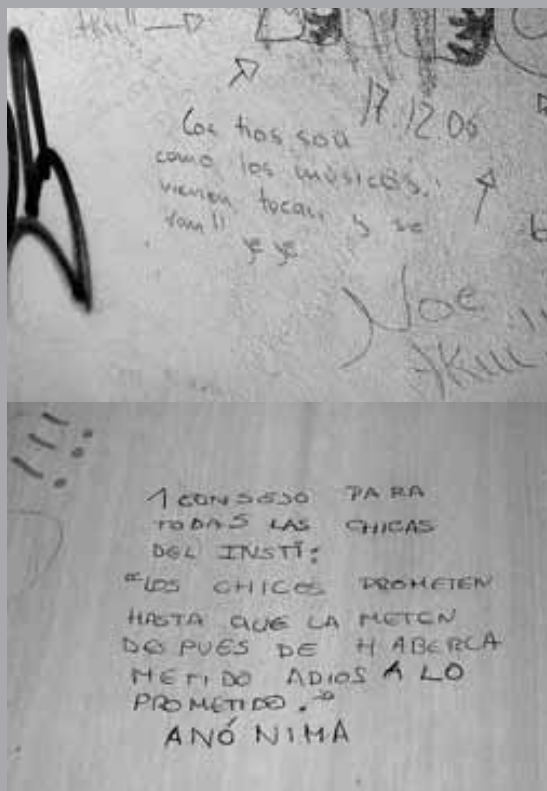 AKIII"
17.12.06
Los tios son
como los músicos:
vienen tocan y se
van!!
ye ye
Noe
AKIII"
!!!
1 CONSEJO PARA
TODAS LAS CHICAS
DEL INSTI:
"LOS CHICOS PROMETEN
HASTA QUE LA METEN
DESPUES DE HABERLA
METIDO ADIOS A LO
PROMETIDO."
ANÓNIMA